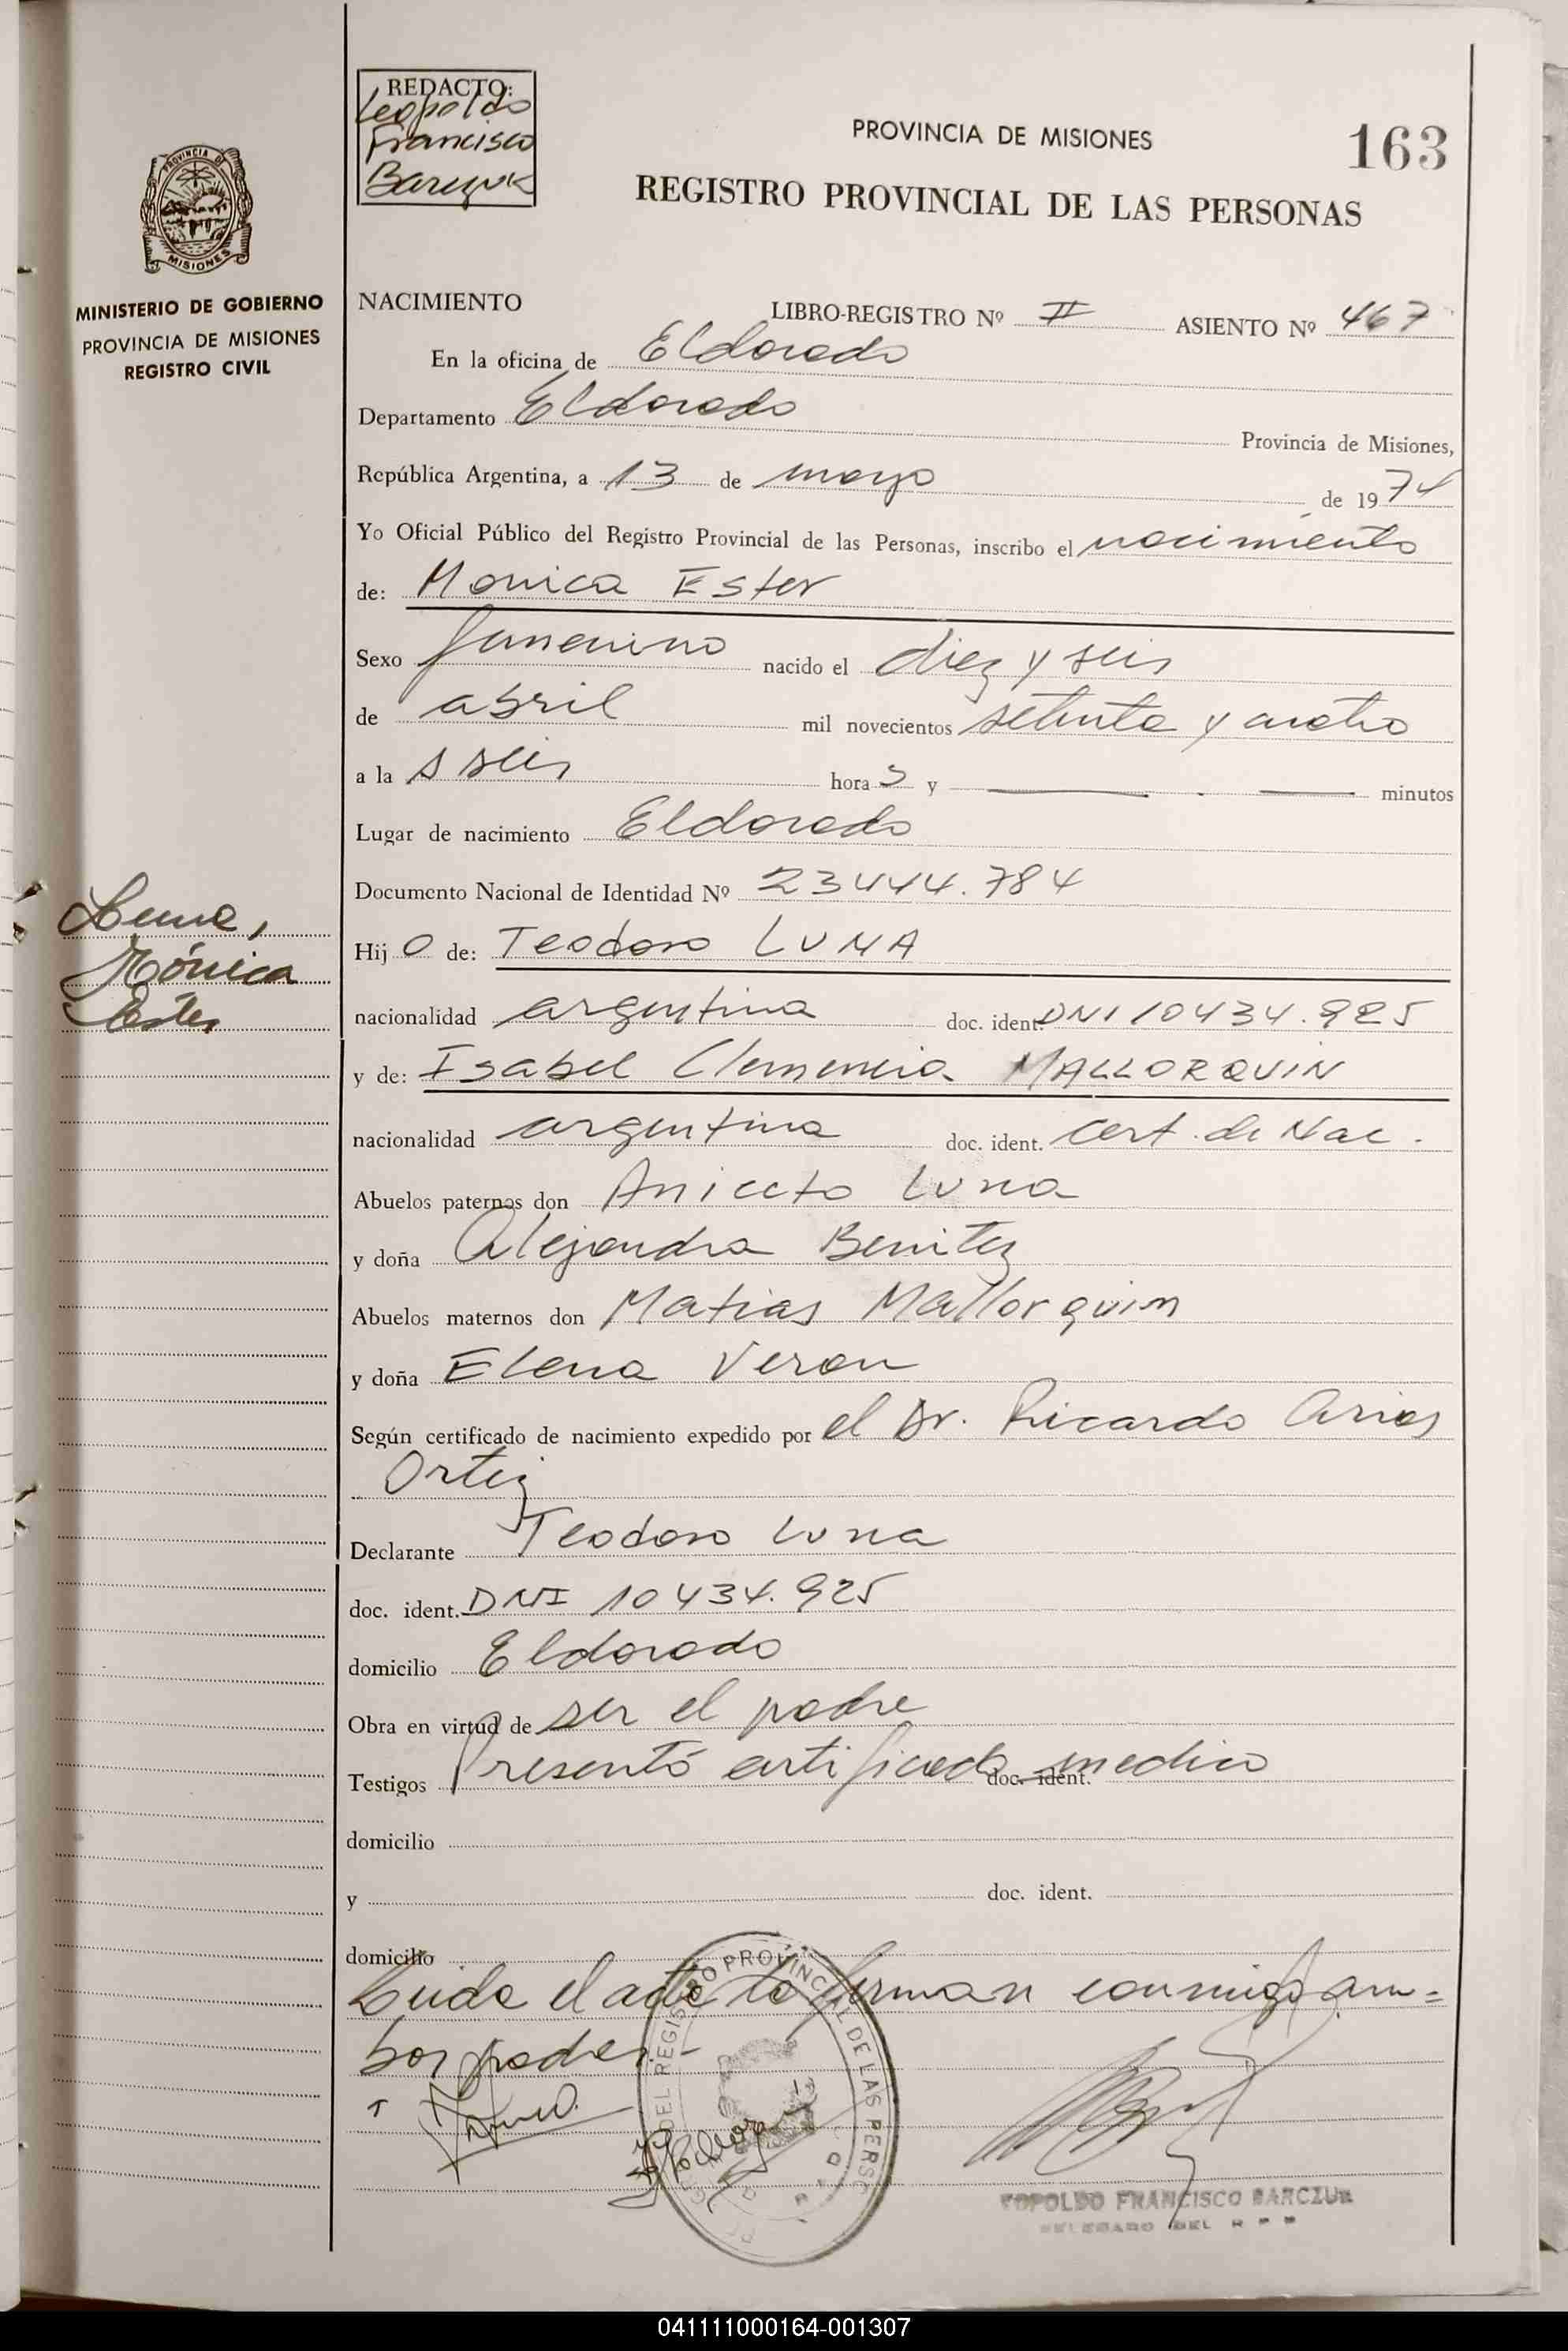 REDACTO:
Leopoldo
Francisco
Barczuk
PROVINCIA DE MISIONES
163
REGISTRO PROVINCIAL DE LAS PERSONAS
PROVINCIA DE
MISIONES
MINISTERIO DE GOBIERNO
PROVINCIA DE MISIONES
REGISTRO CIVIL
NACIMIENTO LIBRO-REGISTRO Nº II ASIENTO Nº 467
En la oficina de Eldorado
Departamento Eldorado Provincia de Misiones,
República Argentina, a 13 de mayo de 1974
Yo Oficial Público del Registro Provincial de las Personas, inscribo el nacimiento
de: Monica Ester
Sexo femenino nacido el diez y seis
de abril mil novecientos setenta y cuatro
a la s seis hora s y minutos
Lugar de nacimiento Eldorado
Documento Nacional de Identidad Nº 23444.784
Luna,
Mónica
Ester
Hij o de: Teodoro LUNA
nacionalidad argentina doc. ident. DNI 10434.925
y de: Isabel Clemencia MALLORQUIN
nacionalidad argentina doc. ident. Cert. de Nac.
Abuelos paternos don Aniceto Luna
y doña Alejandra Benitez
Abuelos maternos don Matias Mallorquin
y doña Elena Veron
Según certificado de nacimiento expedido por el Dr. Ricardo Arias
Ortiz
Declarante Teodoro Luna
doc. ident. DNI 10434.925
domicilio Eldorado
Obra en virtud de ser el padre
Testigos Presentó certificado medico doc. ident.
domicilio
y doc. ident.
domicilio
Leida el acta la firman conmigo am=
bos padres.-
DEL REGISTRO PROVINCIAL DE LAS PERSO
LEOPOLDO FRANCISCO BARCZUK
DELEGADO DEL R P P
041111000164-001307